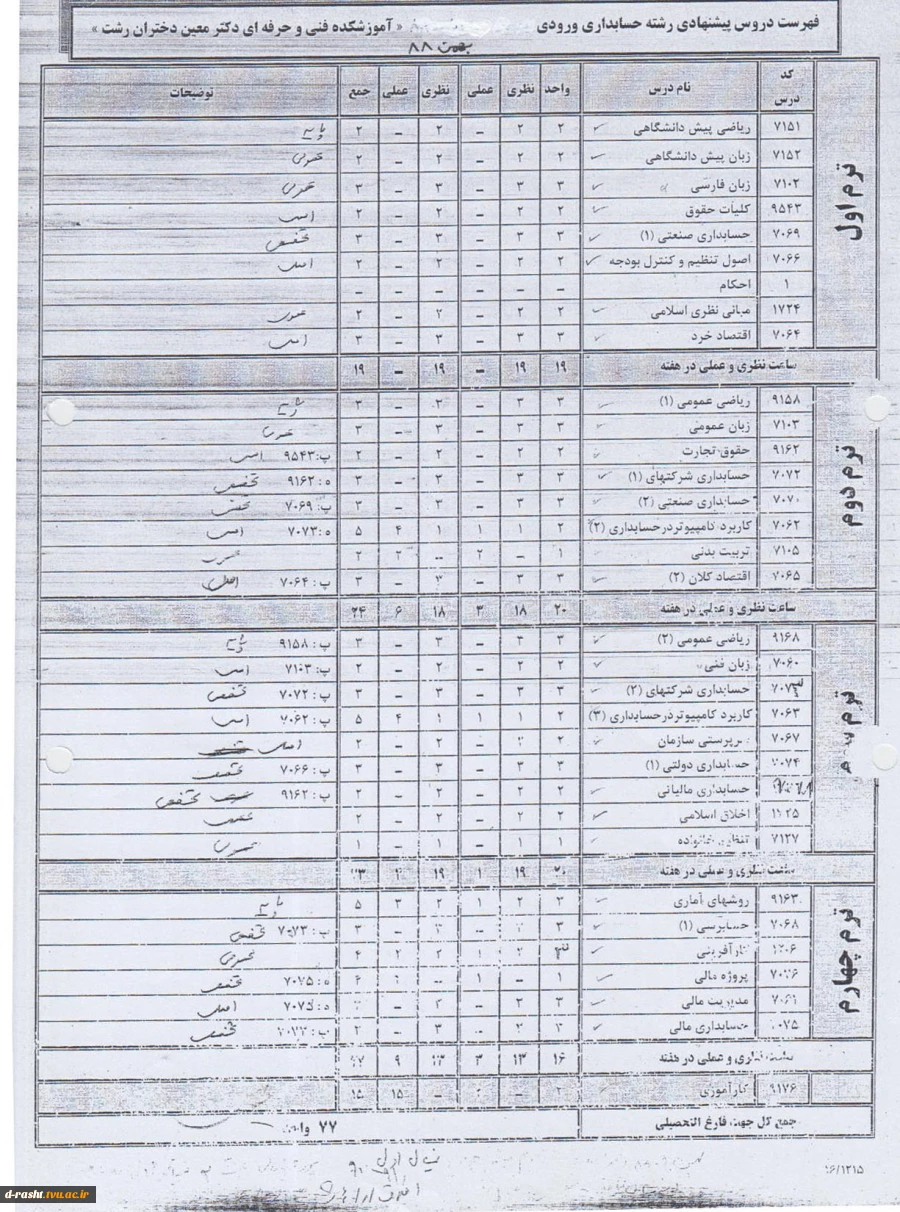 فهرست دروس پیشنهادی رشته حسابداری ورودی « آموزشکده فنی و حرفه ای دکتر معین دختران رشت »
بهمن ۸۸
کد درس نام درس واحد نظری عملی نظری عملی جمع توضیحات
ترم اول
۷۱۵۱ ریاضی پیش دانشگاهی ۲ ۲ – ۲ – ۲ پایه
۷۱۵۲ زبان پیش دانشگاهی ۲ ۲ – ۲ – ۲ عمومی
۷۱۰۲ زبان فارسی ۳ ۳ – ۳ – ۳ عمومی
۹۵۴۳ کلیات حقوق ۲ ۲ – ۲ – ۲ اصلی
۷۰۶۹ حسابداری صنعتی (۱) ۳ ۳ – ۳ – ۳ تخصصی
۷۰۶۶ اصول تنظیم و کنترل بودجه ۲ ۲ – ۲ – ۲ اصلی
۱ احکام – – – – – –
۱۷۲۴ مبانی نظری اسلامی ۲ ۲ – ۲ – ۲ عمومی
۷۰۶۴ اقتصاد خرد ۳ ۳ – ۳ – ۳ اصلی
ساعت نظری و عملی در هفته ۱۹ ۱۹ – ۱۹ – ۱۹
ترم دوم
۹۱۵۸ ریاضی عمومی (۱) ۳ ۳ – ۳ – ۳ پایه
۷۱۰۳ زبان عمومی ۳ ۳ – ۳ – ۳ عمومی
۹۱۶۲ حقوق تجارت ۲ ۲ – ۲ – ۲ پ:۹۵۴۳ اصلی
۷۰۷۲ حسابداری شرکتهای (۱) ۳ ۳ – ۳ – ۳ ه:۹۱۶۲ تخصصی
۷۰۷۰ حسابداری صنعتی (۲) ۳ ۳ – ۳ – ۳ پ:۷۰۶۹ تخصصی
۷۰۶۲ کاربرد کامپیوتردرحسابداری (۲) ۲ ۱ ۱ ۱ ۴ ۵ ه:۷۰۷۳ اصلی
۷۱۰۵ تربیت بدنی ۱ – ۲ – ۲ ۲ عمومی
۷۰۶۵ اقتصاد کلان (۲) ۳ ۳ – ۳ – ۳ پ:۷۰۶۴ اصلی
ساعت نظری و عملی در هفته ۲۰ ۱۸ ۳ ۱۸ ۶ ۲۴
ترم سوم
۹۱۶۸ ریاضی عمومی (۲) ۳ ۳ – ۳ – ۳ پ:۹۱۵۸ پایه
۷۰۶۰ زبان فنی ۲ ۲ – ۲ – ۲ پ:۷۱۰۳ اصلی
۷۰۷۳ حسابداری شرکتهای (۲) ۳ ۳ – ۳ – ۳ پ:۷۰۷۲ تخصصی
۷۰۶۳ کاربرد کامپیوتردرحسابداری (۳) ۲ ۱ ۱ ۱ ۴ ۵ پ:۷۰۶۲ اصلی
۷۰۶۷ سرپرستی سازمان ۲ ۲ – ۲ – ۲ اصلی
۷۰۷۴ حسابداری دولتی (۱) ۳ ۳ – ۳ – ۳ پ:۷۰۶۶ تخصصی
حسابداری مالیاتی ۲ ۲ – ۲ – ۲ پ:۹۱۶۲ تخصصی
اخلاق اسلامی ۲ ۲ – ۲ – ۲ عمومی
۷۱۲۷ تنظیم خانواده ۱ ۱ – ۱ – ۱ عمومی
ساعت نظری و عملی در هفته ۲۰ ۱۹ ۱ ۱۹
ترم چهارم
۹۱۶۳ روشهای آماری ۳ ۲ ۱ ۲ ۳ ۵ پایه
۷۰۶۸ حسابرسی (۱) ۳ – – ۳ پ:۷۰۷۳ تخصصی
کارآفرینی ۲ ۲ ۴ عمومی
پروژه مالی ۱ – ۱ ه:۷۰۷۵ تخصصی
مدیریت مالی ۳ ه:۷۰۷۵ اصلی
حسابداری مالی ۳ ۳ – پ:۷۰۷۳ تخصصی
ساعت نظری و عملی در هفته ۱۶ ۱۳ ۳ ۱۳ ۹
۹۱۷۶ کارآموزی ۲ – – ۱۵ ۱۵
جمع کل جهت فارغ التحصیلی ۷۷ واحد
d-rasht.tvu.ac.ir